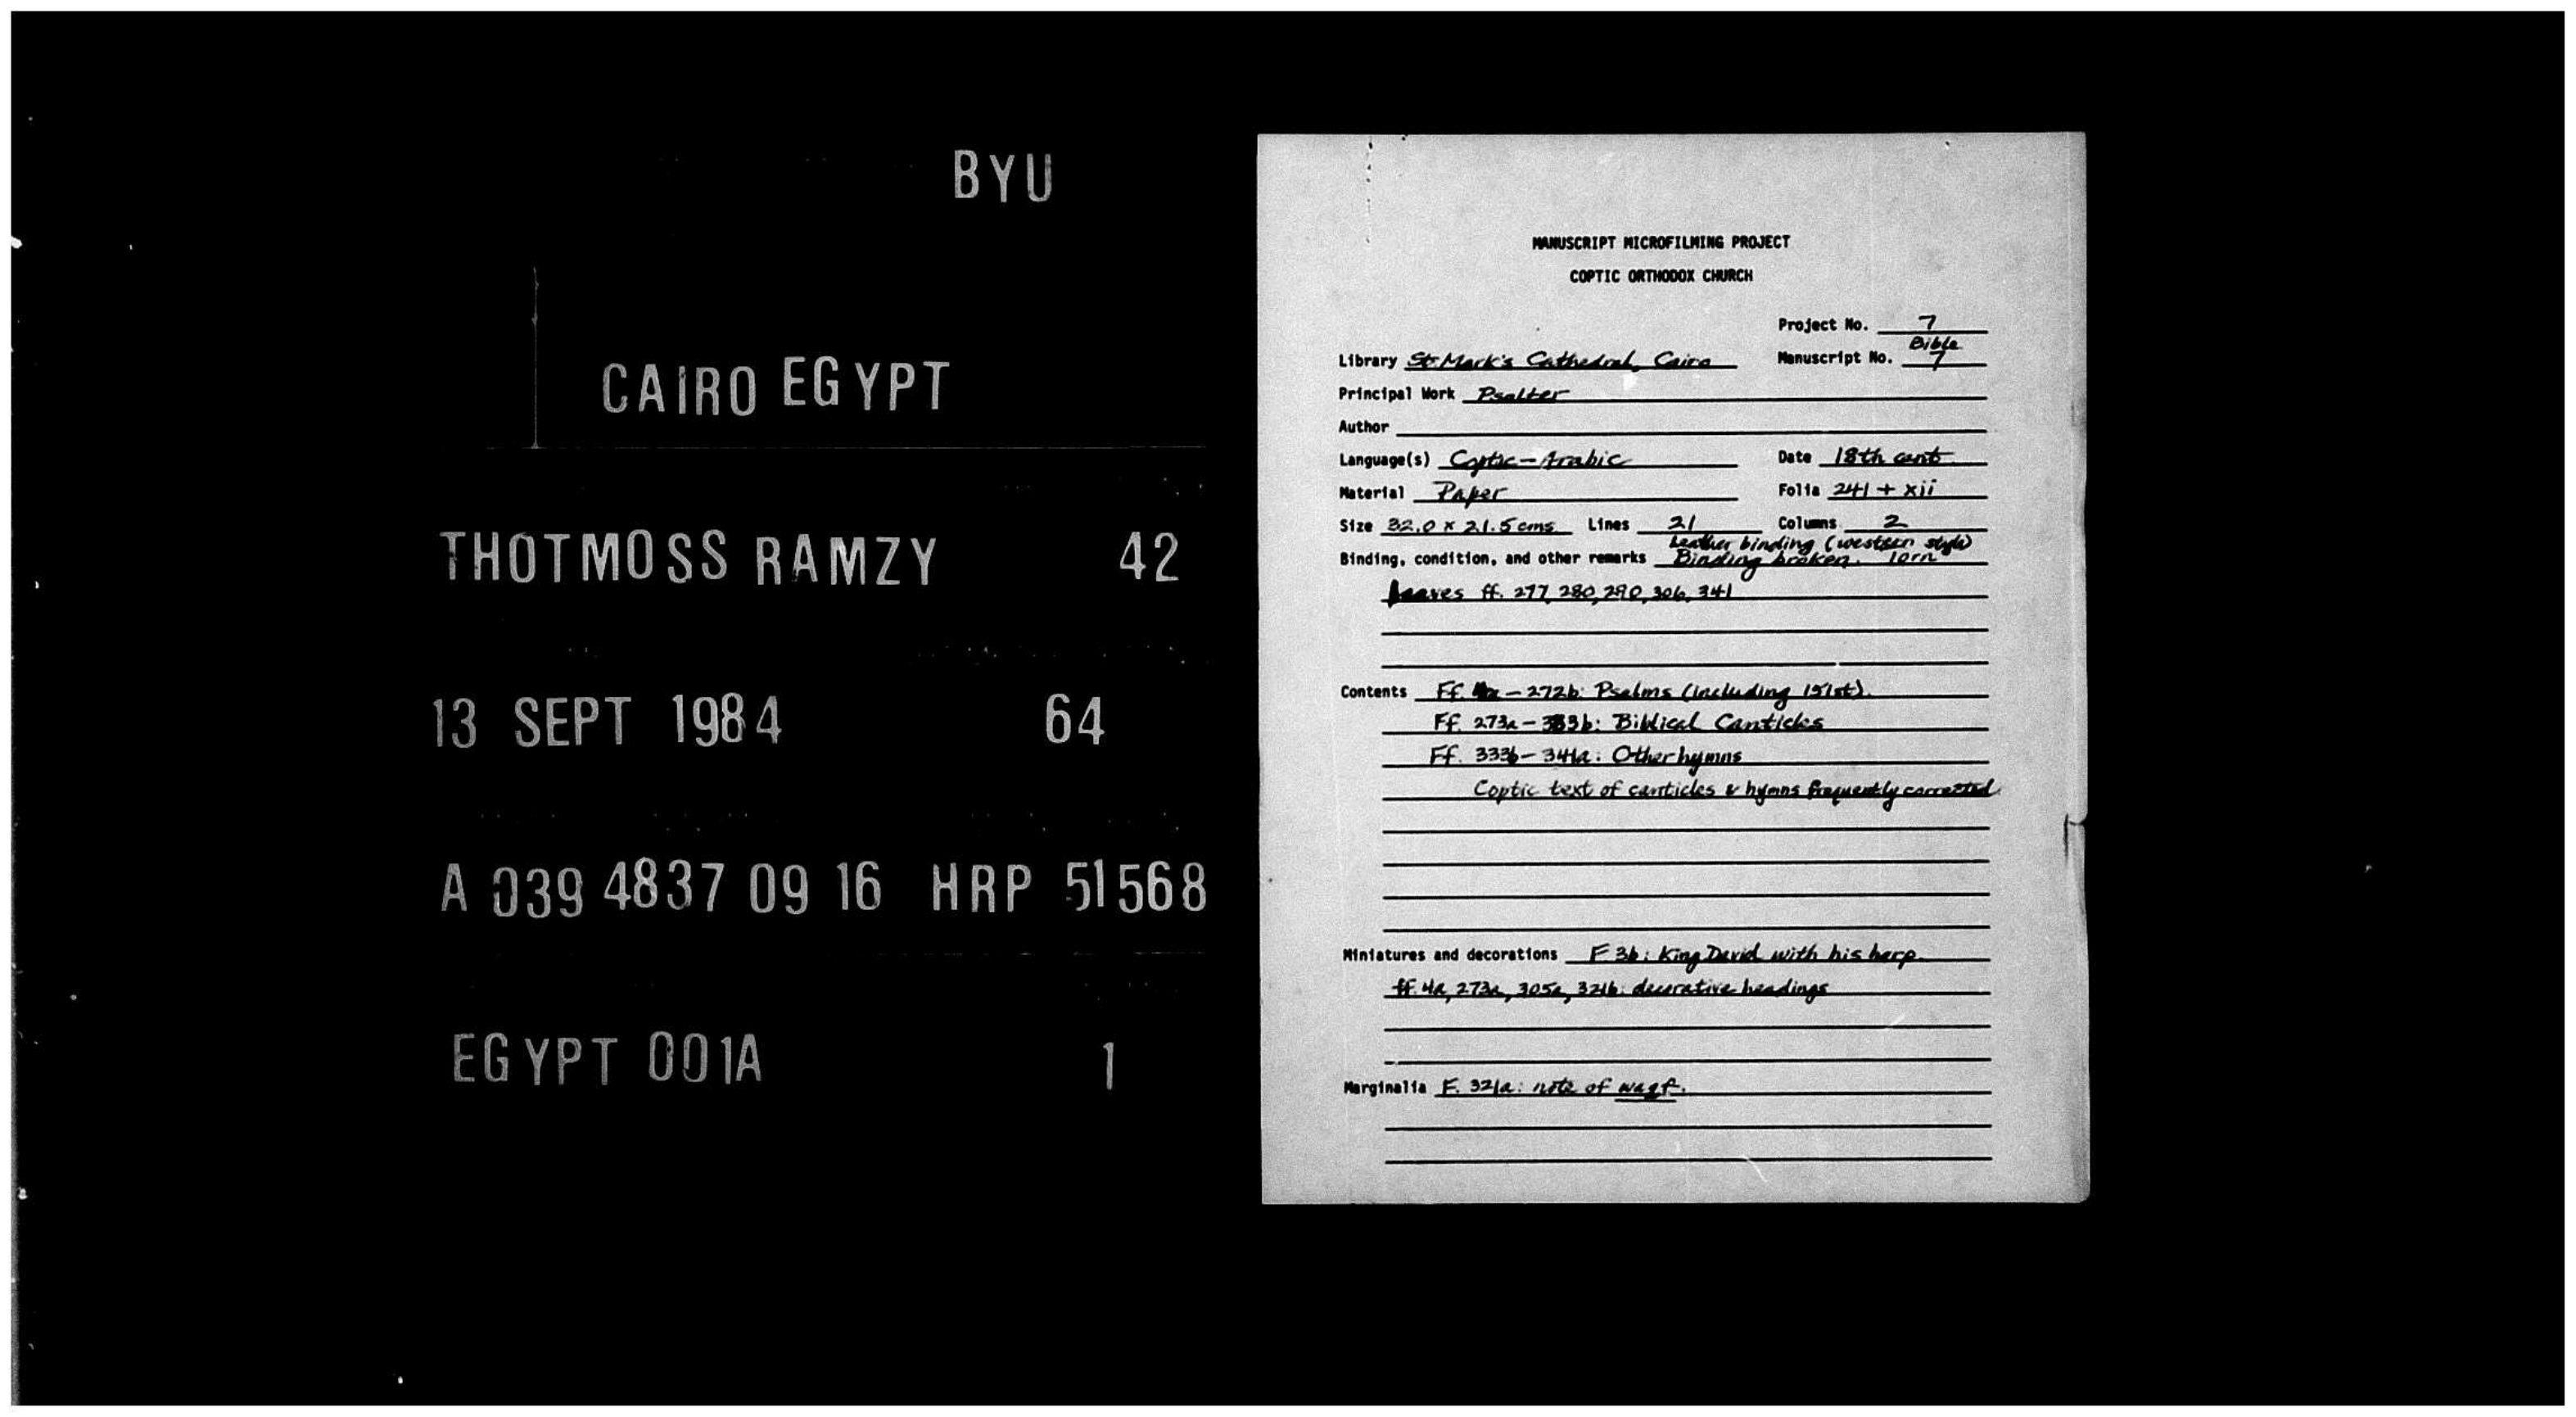 BYU
CAIRO EGYPT
THOTMOSS RAMZY 42
13 SEPT 1984 64
A 039 4837 09 16 HRP 51568
EGYPT 001A 1
MANUSCRIPT MICROFILMING PROJECT
COPTIC ORTHODOX CHURCH
Project No. 7
Library St. Mark's Cathedral, Cairo Manuscript No. Bible 7
Principal Work Psalter
Author
Language(s) Coptic-Arabic Date 18th cent.
Material Paper Folia 241 + xii
Size 32.0 x 21.5 cms Lines 21 Columns 2
Leather binding (western style)
Binding, condition, and other remarks Binding broken. Torn
leaves ff. 277, 280, 290, 306, 341
Contents Ff. 4a-272b: Psalms (including 151st).
Ff. 273a-333b: Biblical Canticles
Ff. 333b-341a: Other hymns
Coptic text of canticles & hymns frequently corrected.
Miniatures and decorations F 3b: King David with his harp.
ff. 4a, 273a, 305a, 321b: decorative headings
Marginalia F. 321a: note of waqf.